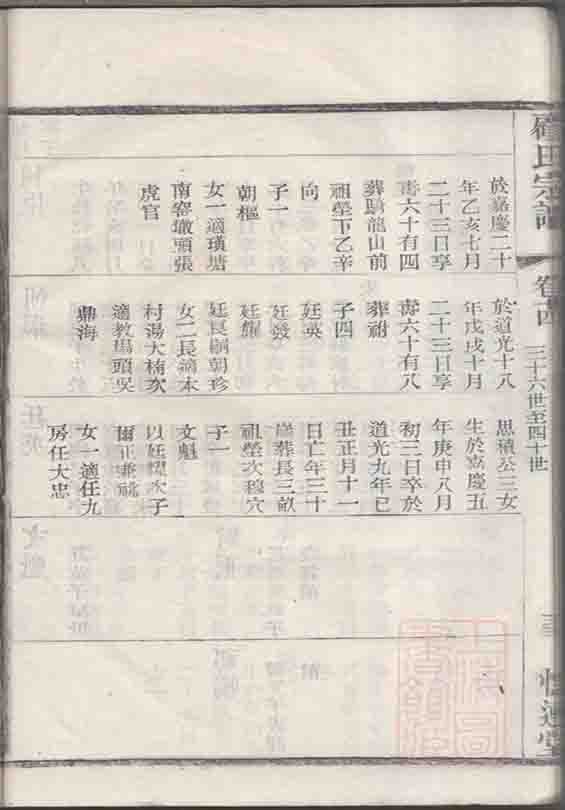 氏宗譜
卷十四
三十六世至四十世
於嘉慶二十
年乙亥七月
二十三日享
壽六十有四
葬臥龍山前
祖塋下乙辛
向
子一
朝樞
女一適璜塘
南窑墩頭張
虎官
於道光十八
年戊戌十月
二十三日享
壽六十有八
葬祔
子四
廷英
廷發
廷耀
廷良嗣朝珍
女二長適本
村湯大楠次
適教場頭吳
鼎海
思積公三女
生於嘉慶五
年庚申八月
初三日卒於
道光九年己
丑正月十一
日亡年三十
葬長三畝
祖塋次穆穴
子一
文魁
以廷耀次子
爾正兼祧
女一適任九
房任大忠